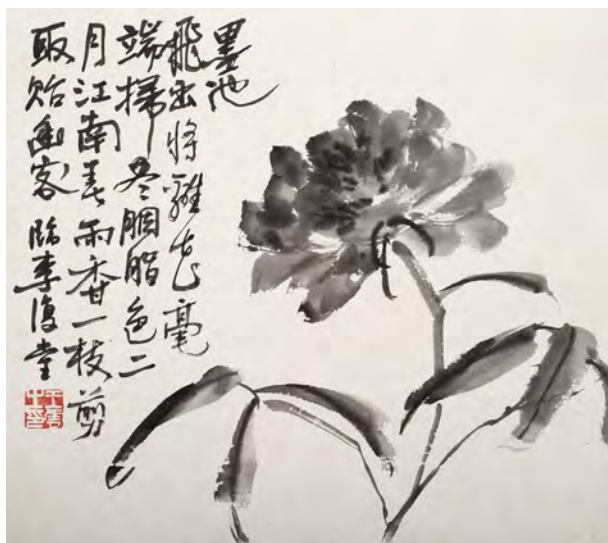 墨池
飛出将離花毫
端掃尽胭脂色二
月江南春雨香一枝剪
取貽幽客临李復堂